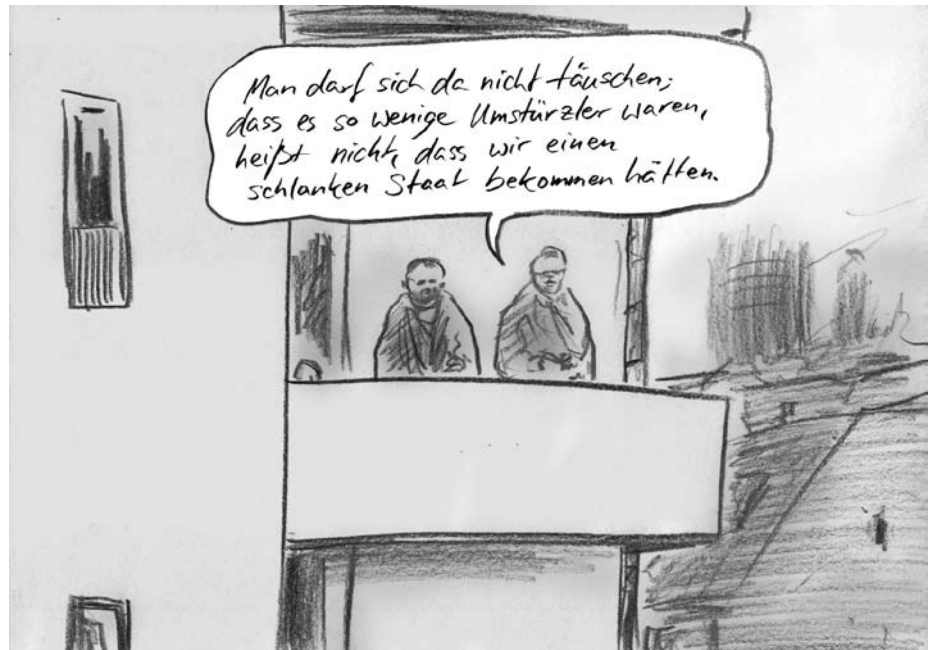 Man darf sich da nicht täuschen;
dass es so wenige Umstürzler waren,
heißt nicht, dass wir einen
schlanken Staat bekommen hätten.